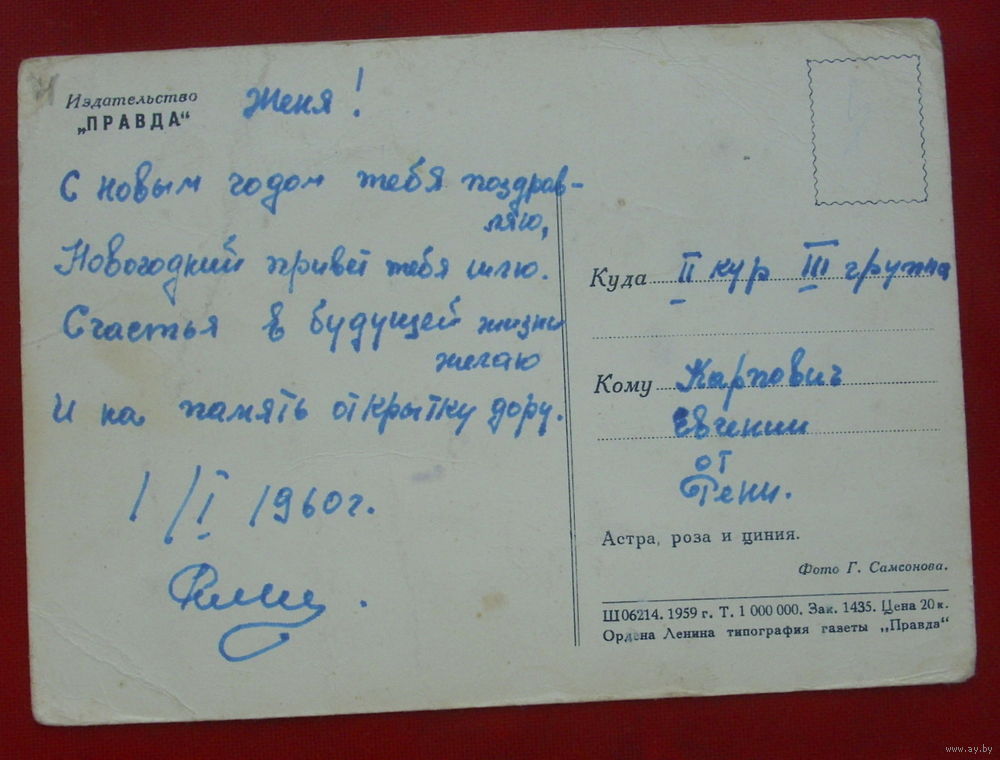 Издательство
„ПРАВДА“
Женя!
С новым годом тебя поздрав-
ляю,
Новогодний привет тебя шлю.
Счастья в будущей жизни
желаю
И на память открытку дору.
1/I 1960г.
Куда II кур III группа
Кому Карпович
Евгении
от
Гени.
Астра, роза и циния.
Фото Г. Самсонова.
Ш06214. 1959 г. Т. 1 000 000. Зак. 1435. Цена 20 к.
Ордена Ленина типография газеты „Правда“
www.ay.by